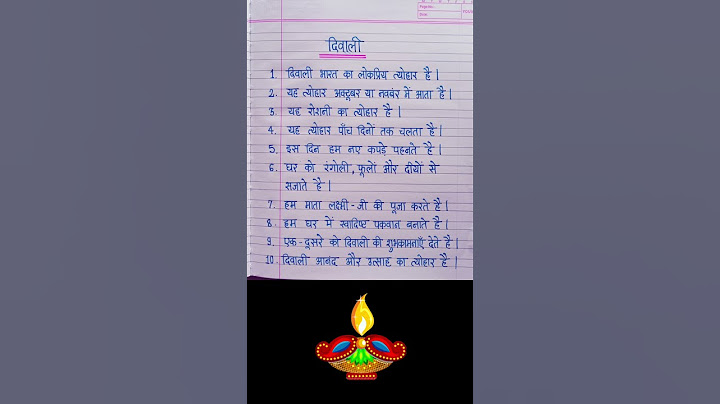 दिवाली
1. दिवाली भारत का लोकप्रिय त्योहार है |
2. यह त्योहार अक्टूबर या नवंबर में आता है |
3. यह रोशनी का त्योहार है |
4. यह त्योहार पाँच दिनों तक चलता है |
5. इस दिन हम नए कपड़े पहनते है |
6. घर को रंगोली, फूलों और दीयों से
सजाते है |
7. हम माता लक्ष्मी-जी की पूजा करते है |
8. हम घर में स्वादिष्ट पकवान बनाते है |
9. एक-दूसरे को दिवाली की शुभकामनाएँ देते है |
10. दिवाली आनंद और उत्साह का त्योहार है |